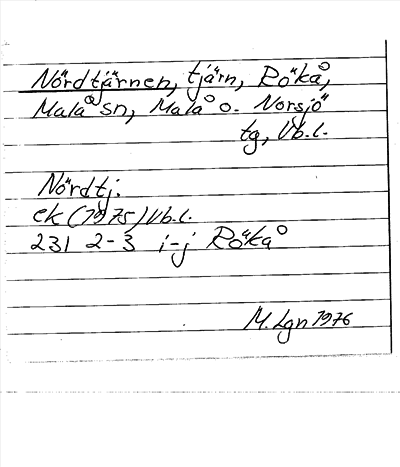 Nördtjärnen, tjärn, Rökå,
Malå sn, Malå o. Norsjö
tg, Vb.l.
Nördtj.
ek (1975) Vb.l.
231 2-3 i-j Rökå
M. Lgn 1976